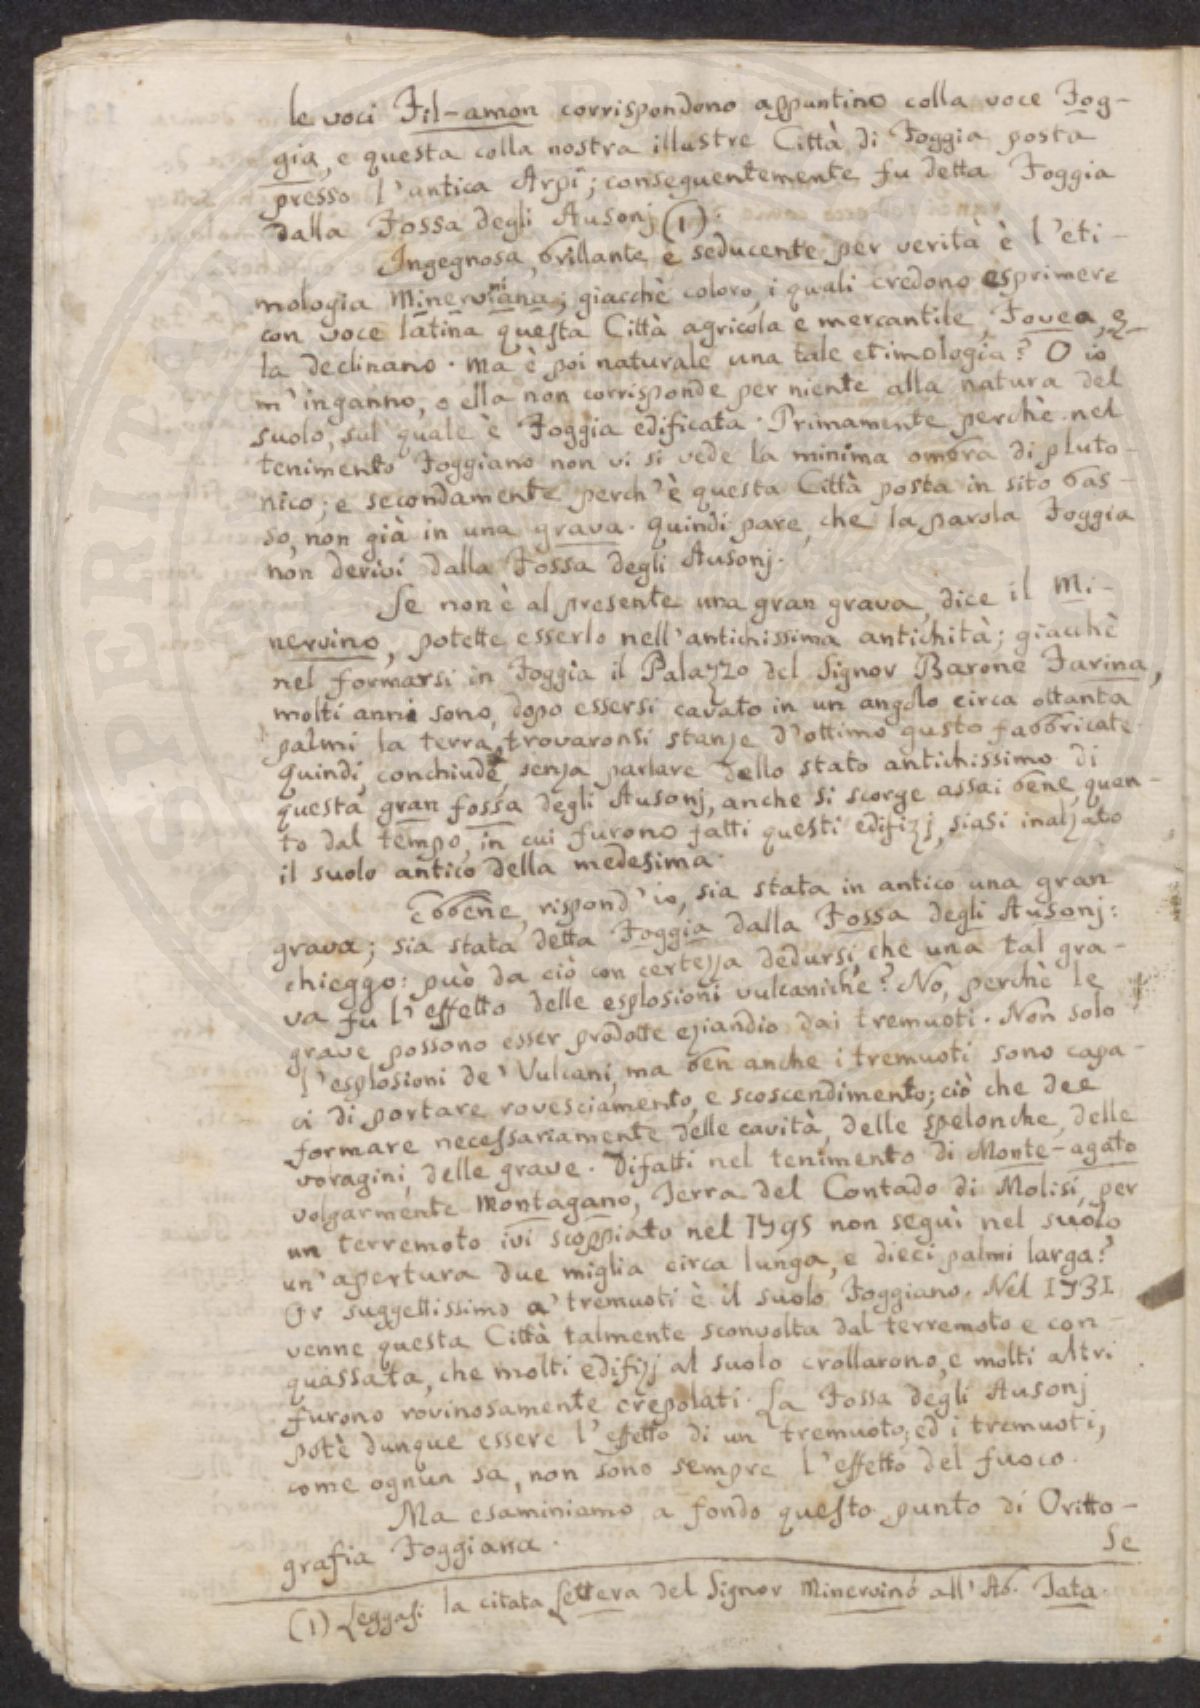 le voci Fil-amon corrispondono appuntino colla voce Fog-
gia, e questa colla nostra illustre Città di Foggia posta
presso l'antica Arpi; conseguentemente fu detta Foggia
dalla Fossa degli Ausonj (1).
Ingegnosa, brillante e seducente per verità è l'eti-
mologia Minerviniana; giacchè coloro, i quali credono esprimere
con voce latina questa Città agricola e mercantile, Fovea, æ
la declinano. Ma è poi naturale una tale etimologia? O io
m'inganno, o ella non corrisponde per niente alla natura del
suolo, sul quale è Foggia edificata. Primamente perchè nel
tenimento Foggiano non vi si vede la minima ombra di pluto-
nico; e secondamente perch'è questa Città posta in sito bas-
so, non già in una grava. Quindi pare, che la parola Foggia
non derivi dalla Fossa degli Ausonj.
Se non è al presente una gran grava, dice il Mi-
nervino, potette esserlo nell'antichissima antichità; giacchè
nel formarsi in Foggia il Palazzo del Signor Barone Farina,
molti anni sono, dopo essersi cavato in un angolo circa ottanta
palmi la terra, trovaronsi stanze d'ottimo gusto fabbricate.
Quindi, conchiude, senza parlare dello stato antichissimo di
questa gran fossa degli Ausonj, anche si scorge assai bene, quan-
to dal tempo, in cui furono fatti questi edifizj, siasi inalzato
il suolo antico della medesima.
Ebbene, rispond'io, sia stata in antico una gran
grava; sia stata detta Foggia dalla Fossa degli Ausonj:
chieggo: può da ciò con certezza dedursi, che una tal gra-
va fu l'effetto delle esplosioni vulcaniche? No, perchè le
grave possono esser prodotte eziandio dai tremuoti. Non solo
l'esplosioni de' Vulcani, ma ben anche i tremuoti sono capa-
ci di portare rovesciamento, e scoscendimento; ciò che dee
formare necessariamente delle cavità, delle spelonche, delle
voragini, delle grave. Difatti nel tenimento di Monte-agato
volgarmente Montagano, Terra del Contado di Molisi, per
un terremoto ivi scoppiato nel 1795 non seguì nel suolo
un'apertura due miglia circa lunga, e dieci palmi larga?
Or suggettissimo a' tremuoti è il suolo Foggiano. Nel 1731
venne questa Città talmente sconvolta dal terremoto e con-
quassata, che molti edifizj al suolo crollarono, e molti altri
furono rovinosamente crepolati. La Fossa degli Ausonj
potè dunque essere l'effetto di un tremuoto; ed i tremuoti,
come ognun sa, non sono sempre l'effetto del fuoco.
Ma esaminiamo a fondo questo punto di Oritto-
grafia Foggiana.
Se
(1) Leggasi la citata Lettera del Signor Minervino all'Ab. Tata.